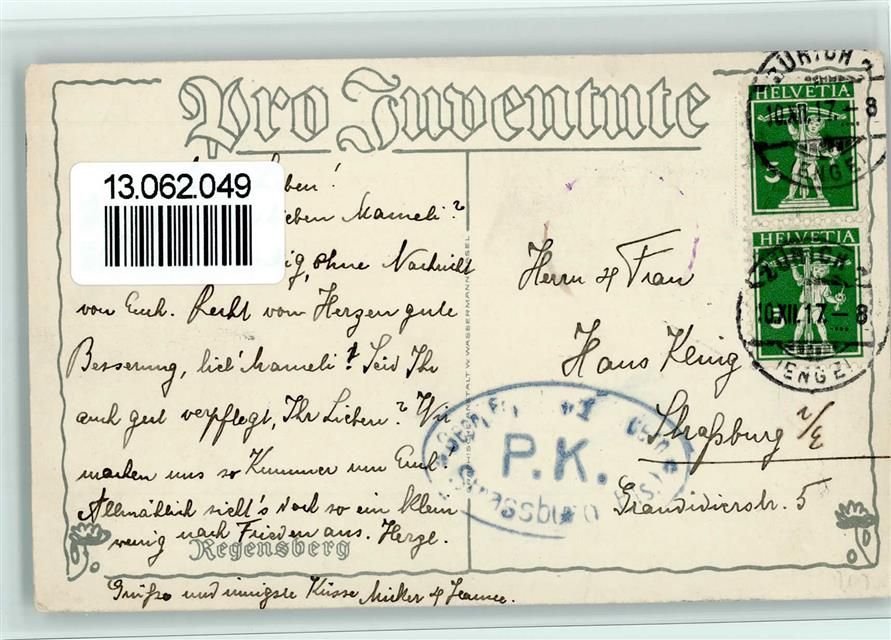 Pro Juventute
13.062.049
ben!
ieben Mameli?
ig, ohne Nachricht
von Euch. Recht von Herzen gute
Besserung, lieb' Mameli! Seid Ihr
auch gut verpflegt, Ihr Lieben? Wir
machen uns so Kummer um Euch
Allmählich sieht's doch so ein klein
wenig nach Frieden aus. Herzl.
Regensberg
Grüsse und innigste Küsse
HELVETIA
5
HELVETIA
5
ZÜRICH 2
10.XII.17.-8
(ENGE)
ZÜRICH 2
10.XII.17.-8
(ENGE)
Herrn & Frau
Hans
Straßburg i/E
Grandidierstr. 5
P.K.
Strassburg (Els.)
WASSERMANN, BASEL